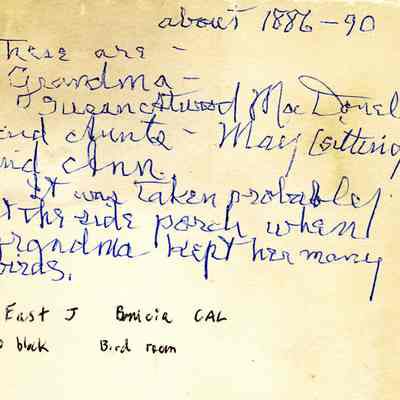 about 1886-90
These are -
Grandma -
Susan Atwood MacDonel
and Aunts - May (sitting
and Ann.
It was taken probably
at the side porch when
grandma kept her many
birds.
East J Benicia CAL
block Bird room